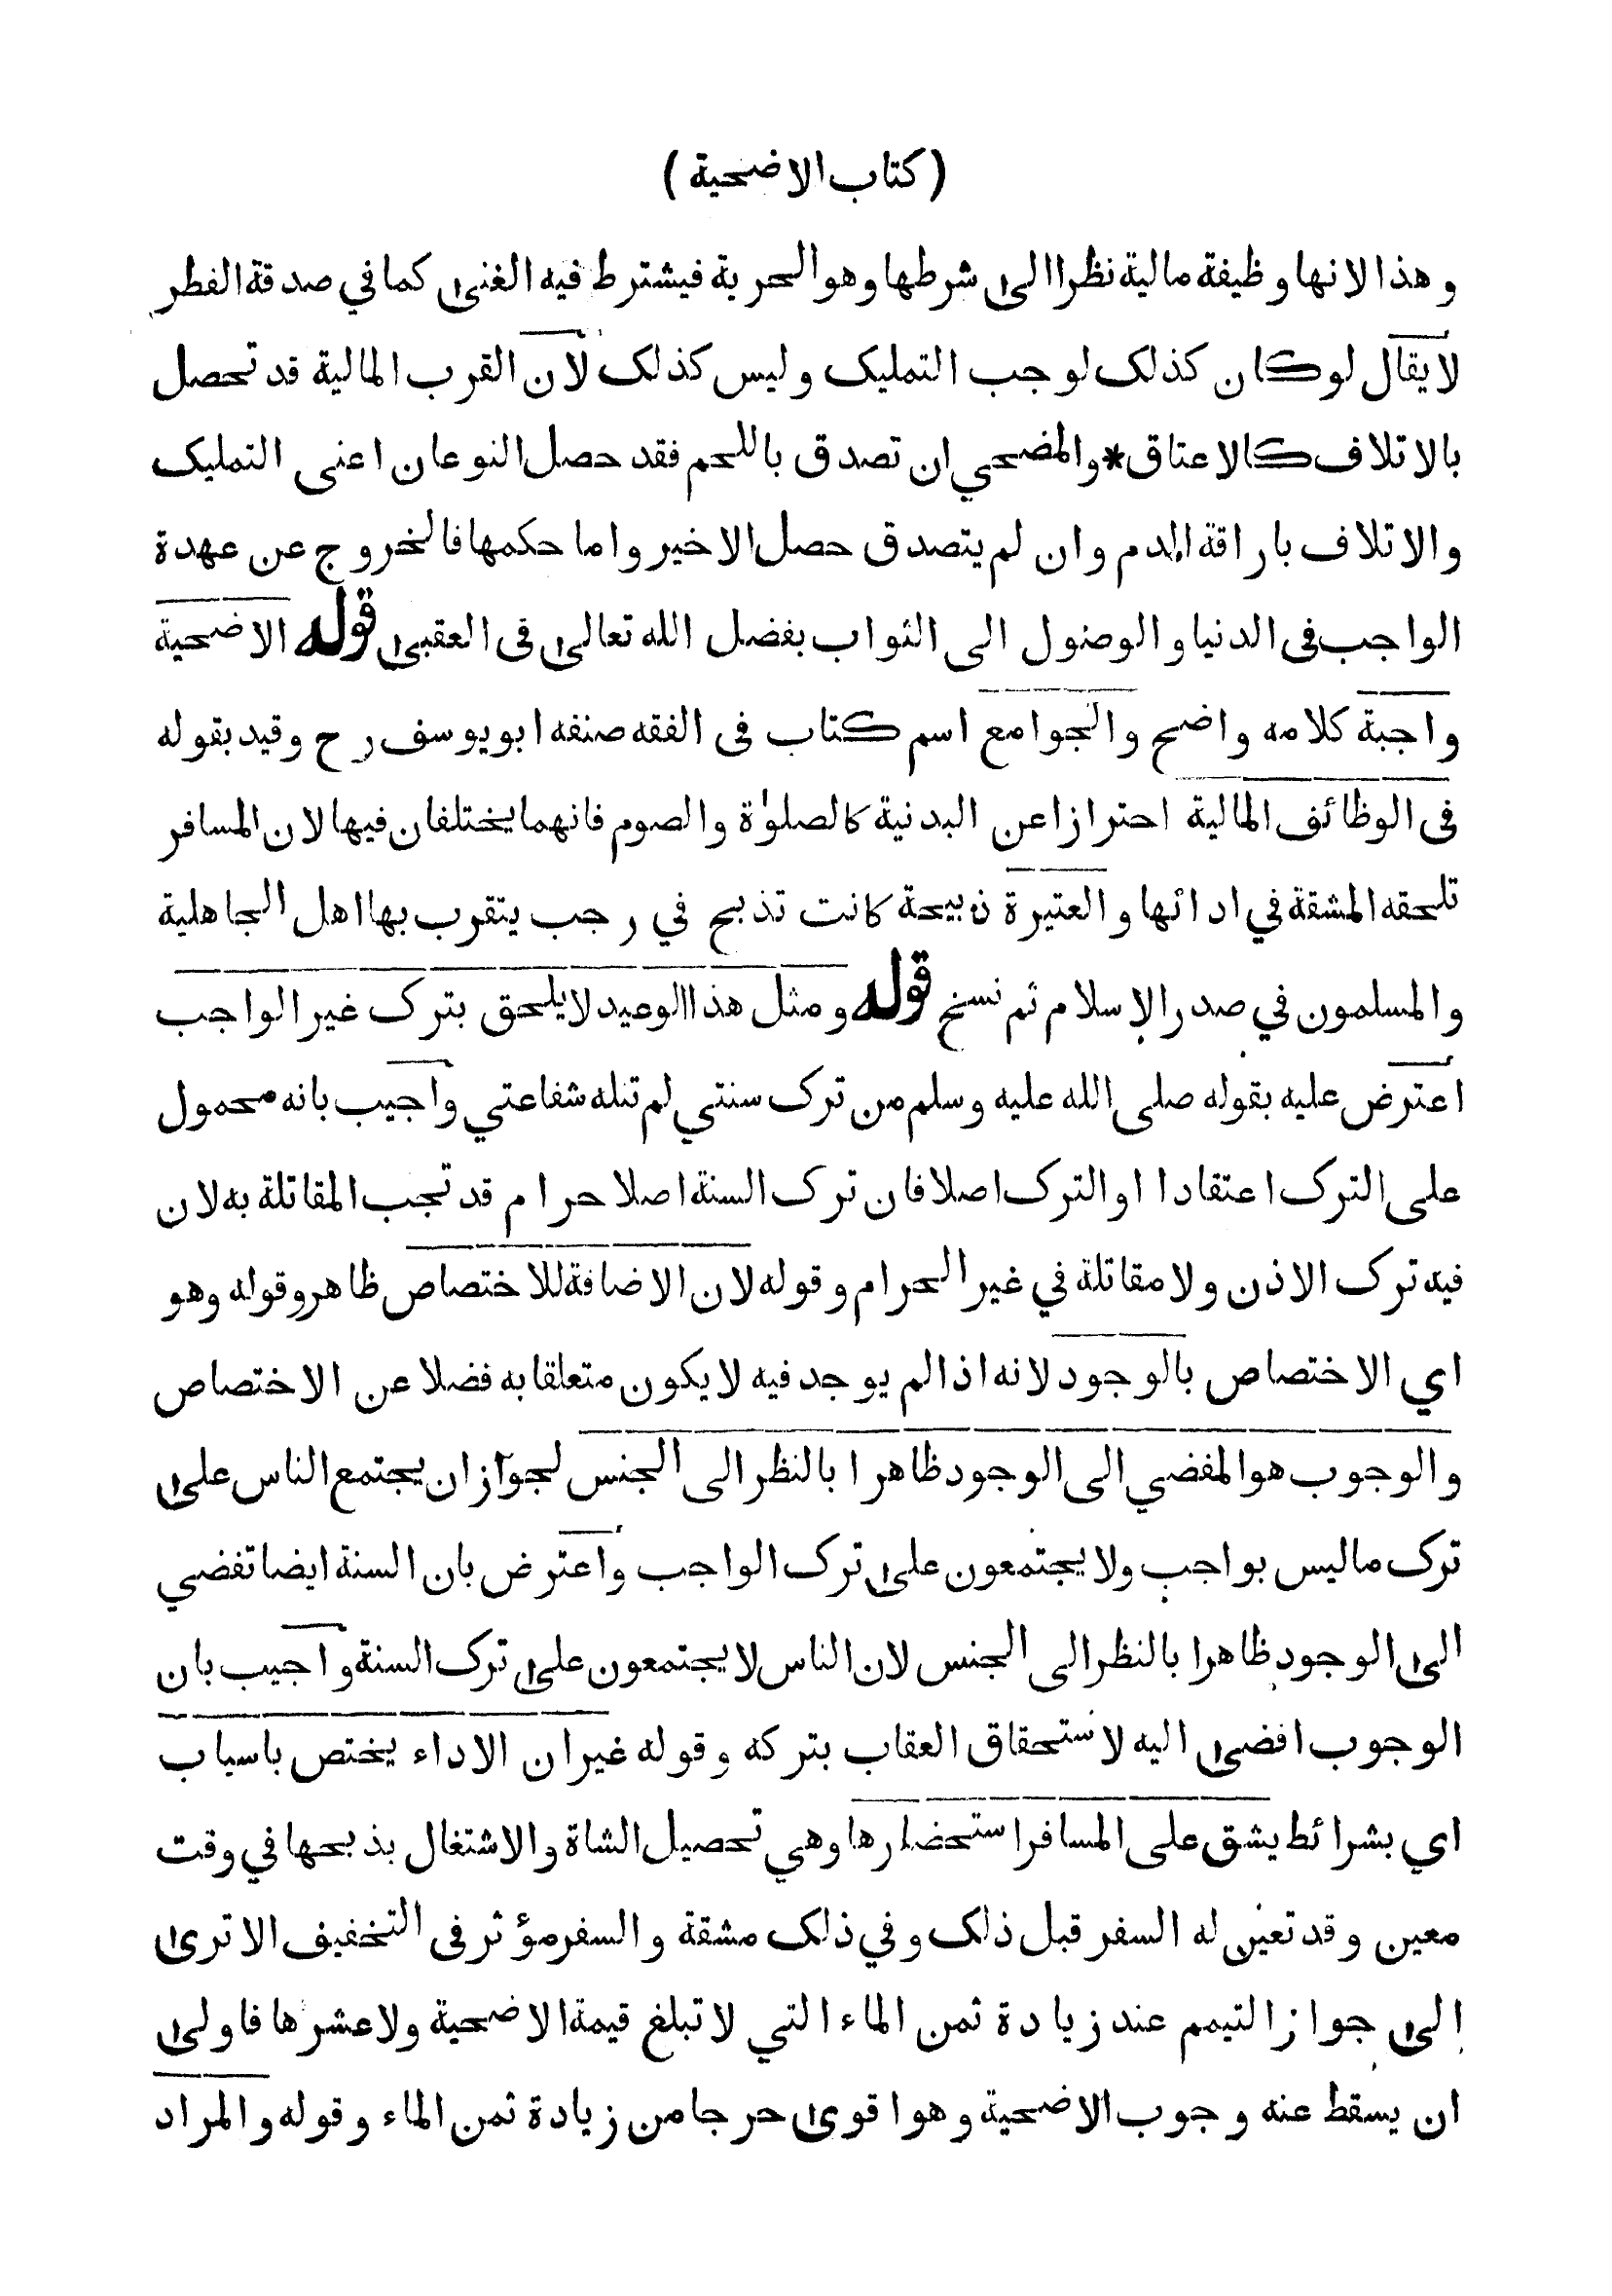 ( كتاب الاضحية )
وهذا لانها وظيفة مالية نظرا الى شرطها وهو الحرية فيشترط فيه الغنى كما في صدقة الفطر
لا يقال لو كان كذلك لوجب التمليك وليس كذلك لان القرب المالية قد تحصل
بالاتلاف كالاعتاق * والمضحي ان تصدق باللحم فقد حصل النوعان اعنى التمليك
والاتلاف باراقة الدم وان لم يتصدق حصل الاخير واما حكمها فالخروج عن عهدة
الواجب فى الدنيا والوصول الى الثواب بفضل الله تعالى فى العقبى قوله الاضحية
واجبة كلامه واضح والجوامع اسم كتاب فى الفقه صنفه ابو يوسف رح وقيد بقوله
فى الوظائف المالية احترازا عن البدنية كالصلوٰة والصوم فانهما يختلفان فيها لان المسافر
تلحقه المشقة في ادائها والعتيرة ذبيحة كانت تذبح في رجب يتقرب بها اهل الجاهلية
والمسلمون في صدر الإسلام ثم نسخ قوله ومثل هذا الوعيد لا يلحق بترك غير الواجب
اعترض عليه بقوله صلى الله عليه وسلم من ترك سنتي لم تنله شفاعتي واجيب بانه محمول
على الترك اعتقادا او الترك اصلا فان ترك السنة اصلا حرام قد تجب المقاتلة به لان
فيه ترك الاذن ولا مقاتلة في غير الحرام وقوله لان الاضافة للاختصاص ظاهر وقوله وهو
اي الاختصاص بالوجود لانه اذا لم يوجد فيه لا يكون متعلقا به فضلا عن الاختصاص
والوجوب هو المفضي الى الوجود ظاهرا بالنظر الى الجنس لجواز ان يجتمع الناس على
ترك ما ليس بواجب ولا يجتمعون على ترك الواجب واعترض بان السنة ايضا تفضي
الى الوجود ظاهرا بالنظر الى الجنس لان الناس لا يجتمعون على ترك السنة واجيب بان
الوجوب افضى اليه لاستحقاق العقاب بتركه وقوله غير ان الاداء يختص باسباب
اي بشرائط يشق على المسافر استحضارها وهي تحصيل الشاة والاشتغال بذبحها في وقت
معين وقد تعين له السفر قبل ذلك وفي ذلك مشقة والسفر مؤثر فى التخفيف الا ترى
الى جواز التيمم عند زيادة ثمن الماء التي لا تبلغ قيمة الاضحية ولا عشرها فاولى
ان يسقط عنه وجوب الاضحية وهو اقوى حرجا من زيادة ثمن الماء وقوله والمراد